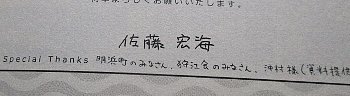 何卒よろしくお願いいたします。
佐藤 宏海
Special Thanks 明浜町のみなさん、狩江会のみなさん、沖村様(資料提供